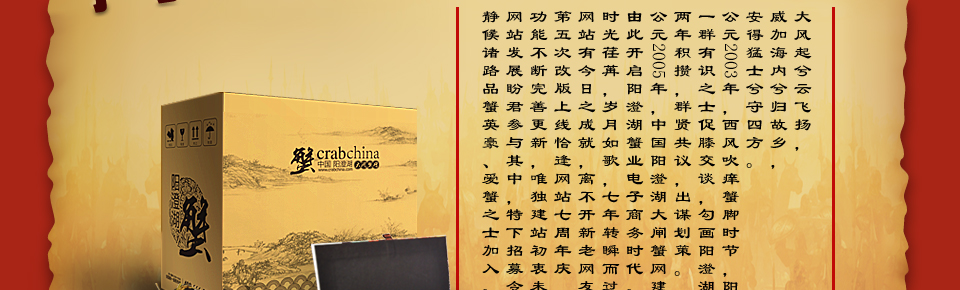 大风起兮云飞扬，
威加海内兮归故乡，
安得猛士兮守四方。
公元2003年，西风吹痒蟹脚时节，阳
一群有识之士促膝交谈，勾画阳澄湖
两年积攒，群贤共议，出谋划策。
公元2005年，中国阳澄湖大闸蟹网建
由此开启阳澄湖蟹业电子商务时代。
时光荏苒，岁月如歌，七年转瞬而过
网站有今日之成就，离不开新老网友
第五次改版上线恰逢网站七周年庆
功能不断完善更新，唯独建站初衷未
网站发展盼君参与其中，特下招募令
静候诸路品蟹英豪、爱蟹之士加入。
蟹
crabchina
中国 阳澄湖
www.crabchina.com
阳澄湖
蟹